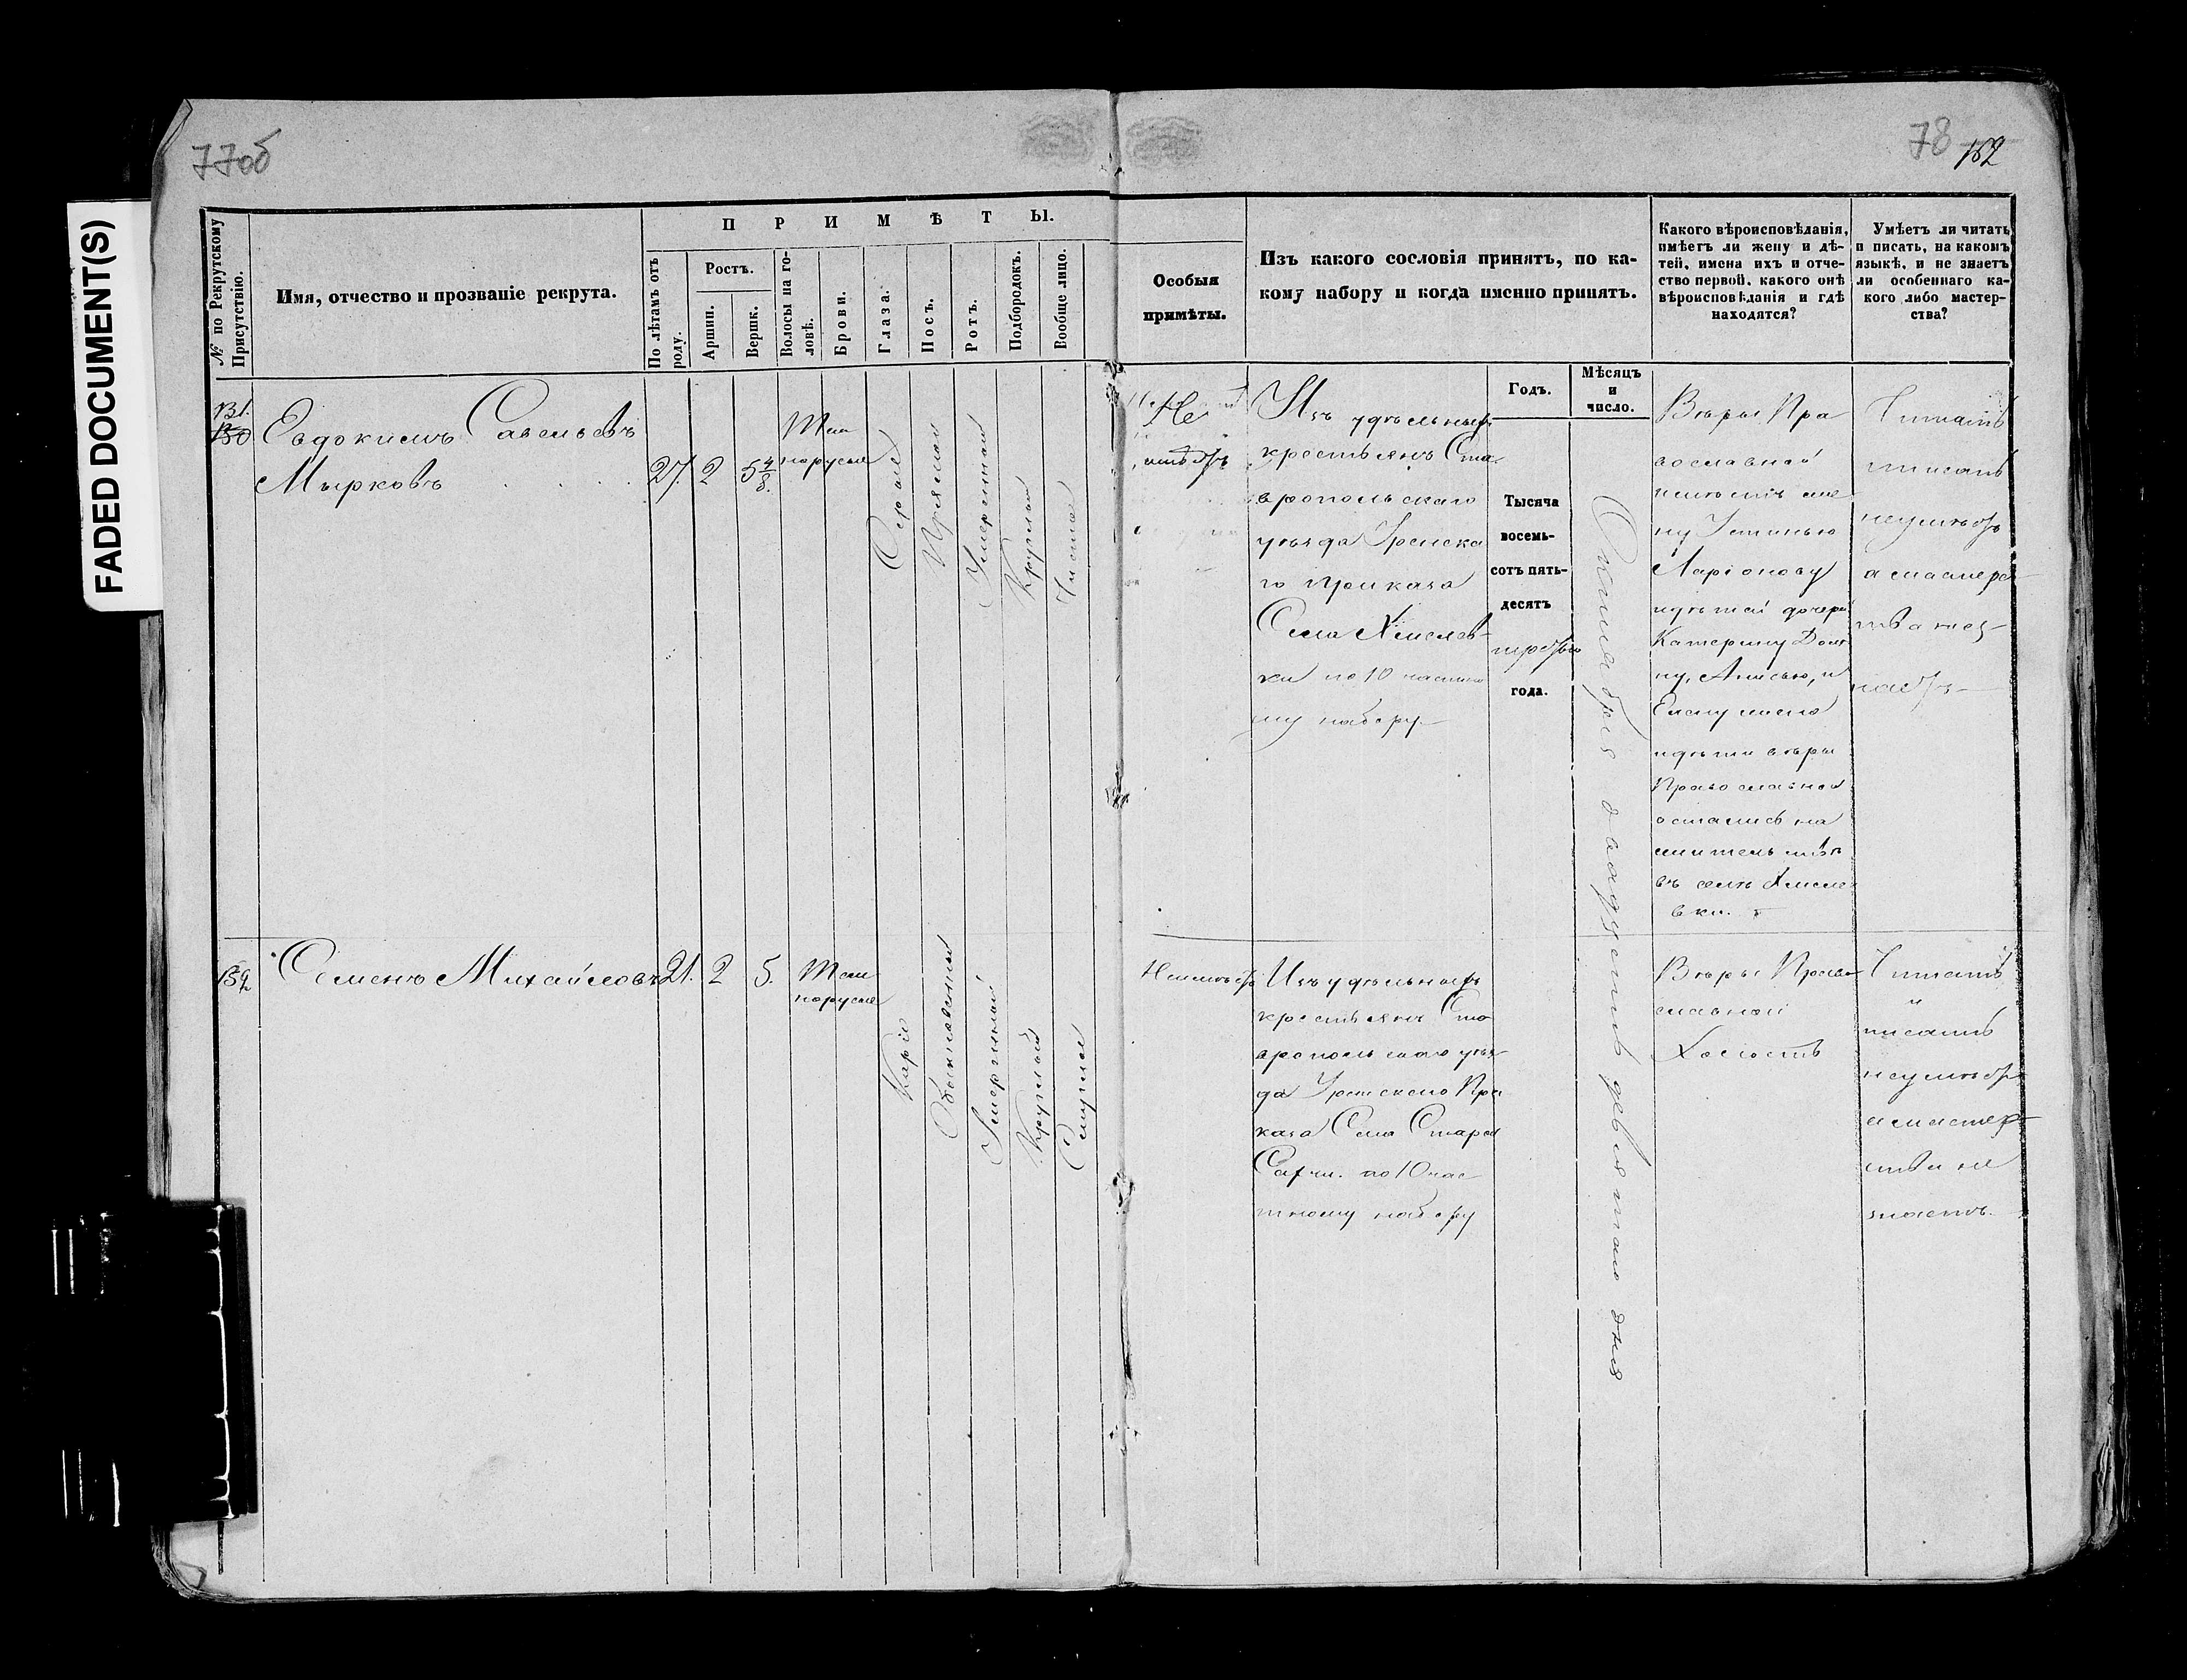 77об
78
152
FADED DOCUMENT(S)
№ по Рекрутскому Присутствію.
Имя, отчество и прозваніе рекрута.
ПРИМѢТЫ.
По лѣтамъ отъ роду.
Ростъ.
Аршин.
Вершк.
Волосы на головѣ.
Брови.
Глаза.
Носъ.
Ротъ.
Подбородокъ.
Вообще лицо.
Особыя
примѣты.
Изъ какого сословія принятъ, по ка-
кому набору и когда именно принятъ.
Какого вѣроисповѣданія,
имѣетъ ли жену и дѣ-
тей, имена ихъ и отче-
ство первой, какого онѣ
вѣроисповѣданія и гдѣ
находятся?
Умѣетъ ли читать
и писать, на какомъ
языкѣ, и не знаетъ
ли особеннаго ка-
кого либо мастер-
ства?
Годъ.
Мѣсяцъ
и
число.
131.
130
Евдокимъ Савельевъ
Мырковъ
27. 2 5 4/8.
Тем
норусые
Серые
Прямой
Умеренной
Круглой
Чисто
Не
имѣетъ
Изъ удѣльныхъ
крестьянъ Ста
вропольскаго
уѣзда Уренска
го приказа
Села Хмелев-
ки по 10 частно
му набору
Тысяча
восемь-
сотъ пять-
десятъ
третьяго
года.
Октября двадцать девятаго дня
Вѣры Пра
вославной
имѣетъ же
ну Устинью
Ларіонову
и дѣтей дочерей
Катерину Дом
ну, Анисью, и
Елену жена
и дѣти вѣры
Православной
остались на
жительствѣ
въ селѣ Хмеле
вки.
Читать
писать
неумѣетъ
а мастерс
тва нез
наетъ
132
Семенъ Михайловъ 21. 2 5.
Тем
норусые
Каріе
Обыкновенный
Умеренный
Круглый
Смуглое
Неимѣетъ
Изъ удѣльныхъ
крестьянъ Ста
вропольскаго уѣз
да Уренскаго При
каза Села Старой
по 10 час
тному набору
Вѣры Право
славной
Холостъ
Читать
и
писать
неумѣетъ
а мастер
ства не
знаетъ.